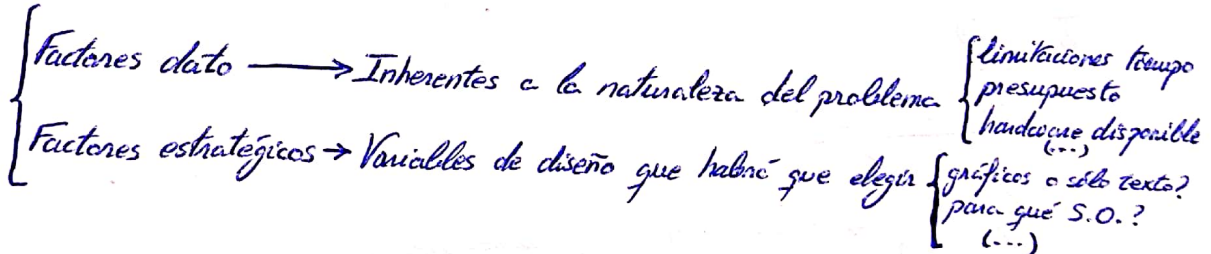 Factores dato → Inherentes a la naturaleza del problema
limitaciones tiempo
presupuesto
hardware disponible
(...)
Factores estratégicos → Variables de diseño que habrá que elegir
gráficos o sólo texto?
para qué S.O.?
(...)